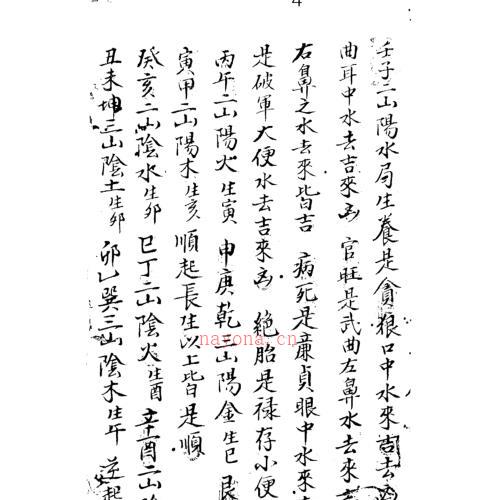 壬子二山陽水局生養是貪狼口中水來吉去
曲耳中水去吉來凶 官旺是武曲左鼻水去來
右鼻之水去來皆吉 病死是廉貞眼中水來
是破軍大便水去吉來凶 絕胎是祿存小便
丙午二山陽火生寅 申庚乾三山陽金生巳 艮
寅甲二山陽木生亥 順起長生以上皆是順
癸亥二山陰水生卯 巳丁二山陰火生酉 辛酉二山
丑未坤三山陰土生卯 卯乙巽三山陰木生午 逆起
nayona.cn